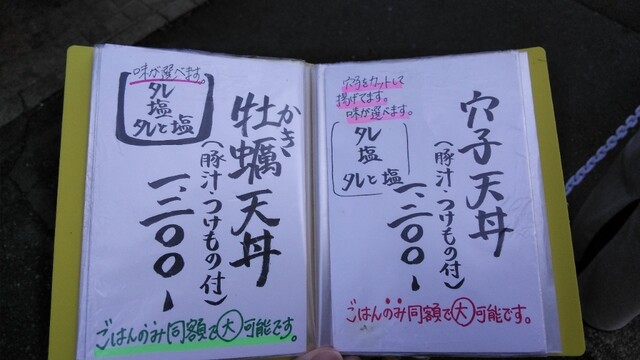 味が選べます。
タレ
塩
タレと塩
かき
牡蠣天丼
(豚汁・つけもの付)
一、二〇〇ー
ごはんのみ同額で大可能です。
穴子をカットして
揚げてます。
味が選べます。
タレ
塩
タレと塩
穴子天丼
(豚汁・つけもの付)
一、二〇〇ー
ごはんのみ同額で大可能です。